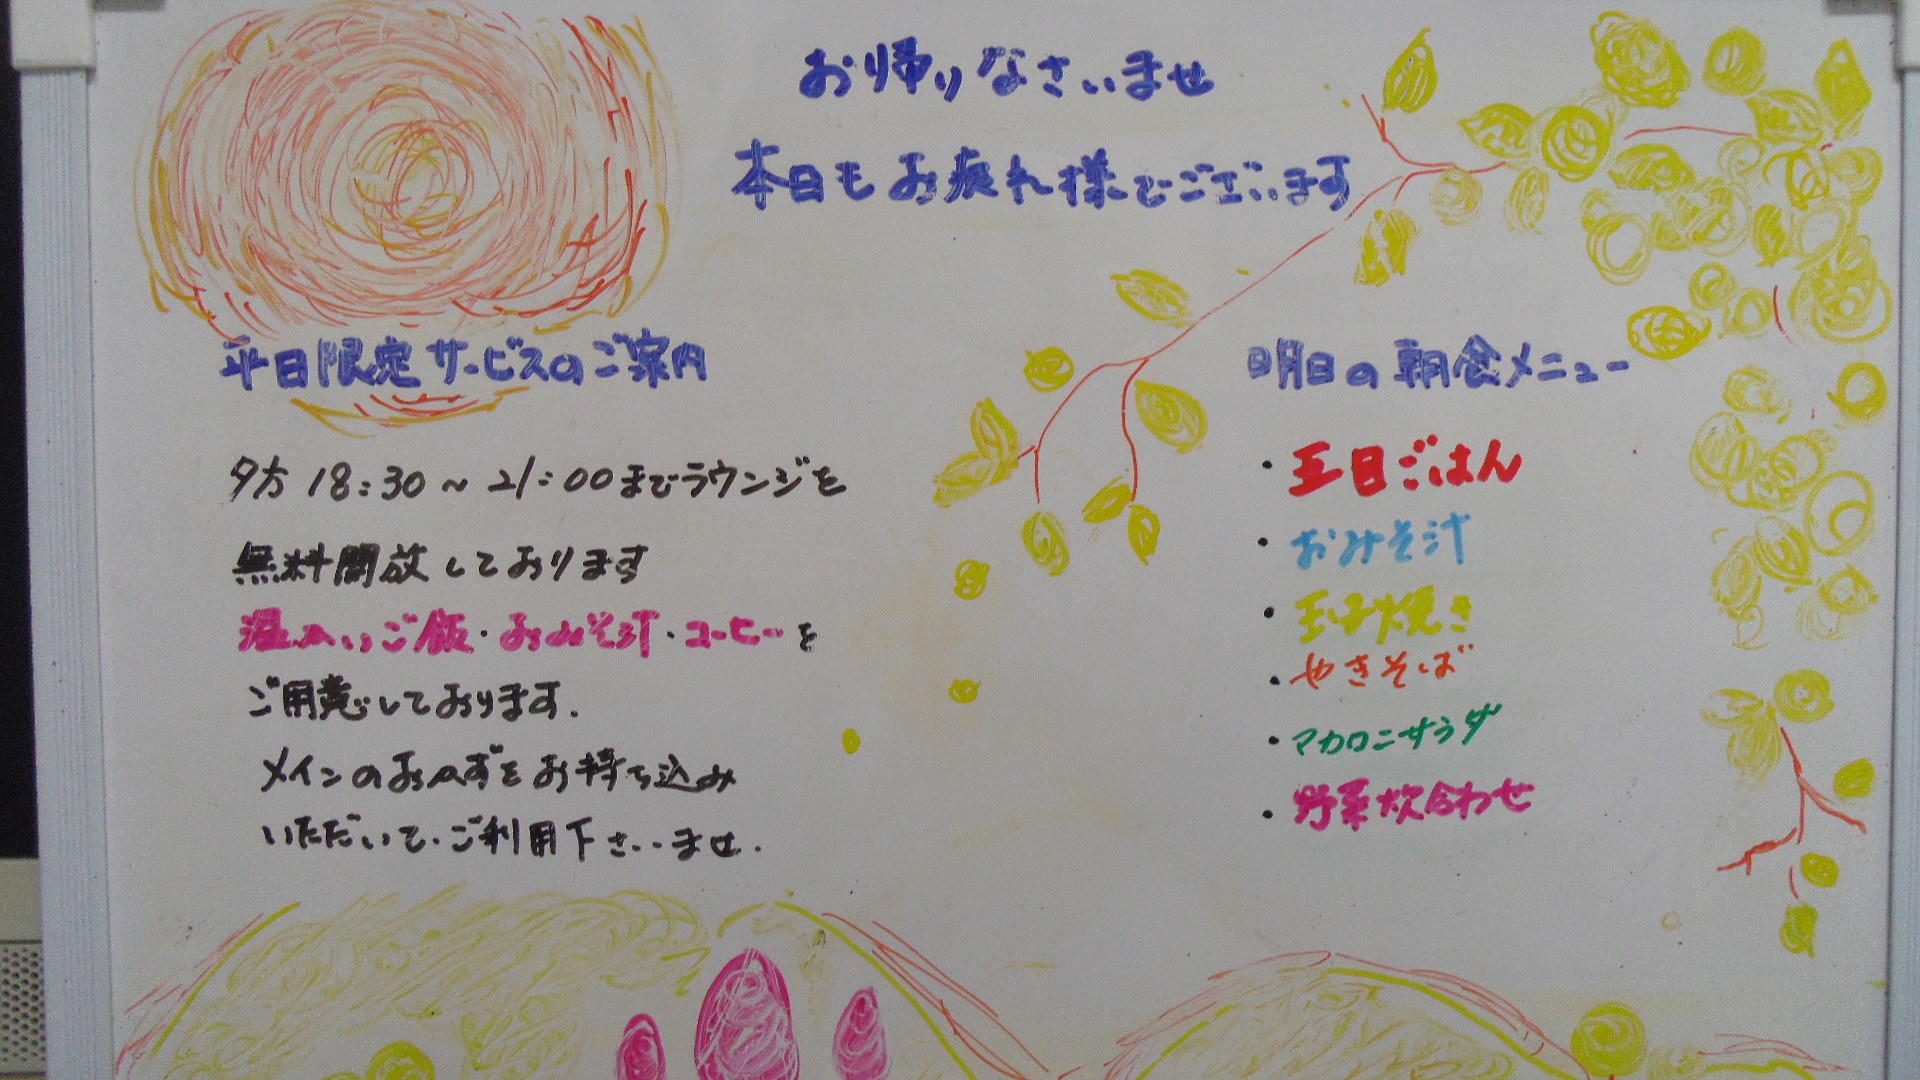 お帰りなさいませ
本日もお疲れ様でございます
平日限定サービスのご案内
夕方 18:30 ~ 21:00までラウンジを
無料開放しております
温かいご飯・おみそ汁・コーヒーを
ご用意しております.
メインのおかずをお持ち込み
いただいて、ご利用下さいませ.
明日の朝食メニュー
・五目ごはん
・おみそ汁
・玉子焼き
・やきそば
・マカロニサラダ
・野菜炊合わせ